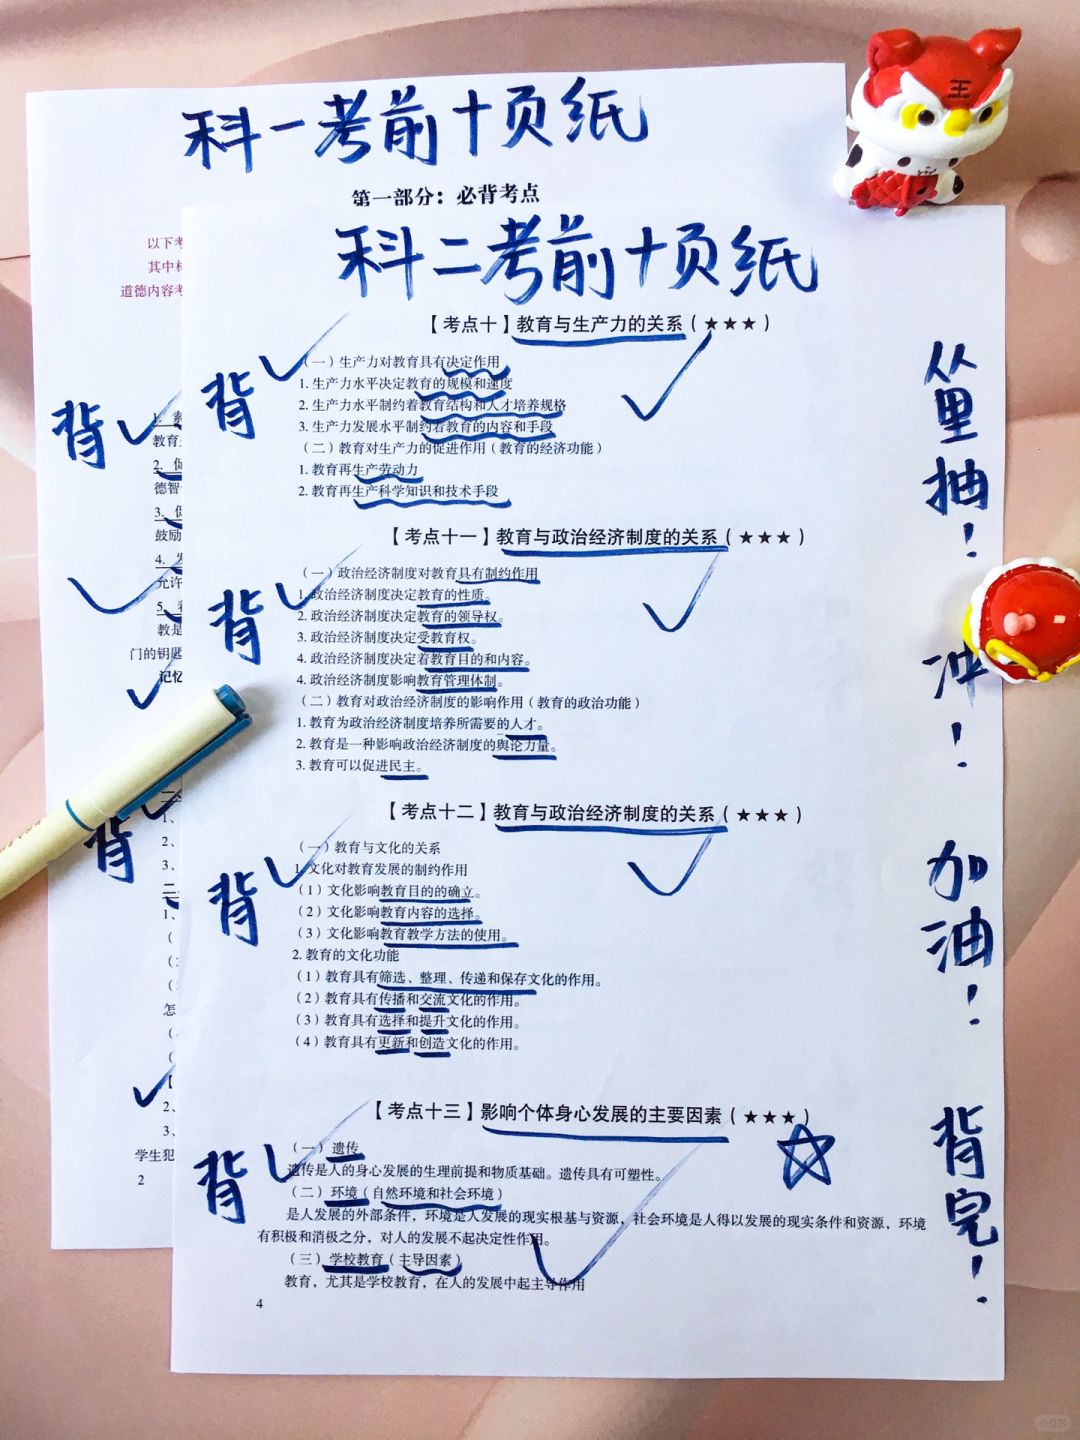 科一考前十页纸
第一部分：必背考点
以下考
其中材
道德内容考
背
1. 素
教育
2. 促
德智
3. 促
鼓励
4. 发
允许
5.
教是
门的钥匙
记忆
背
1、
2、
3、
二
1、
怎
2、
3、
学生犯
2
科二考前十页纸
【考点十】教育与生产力的关系（★★★）
背
（一）生产力对教育具有决定作用
1. 生产力水平决定教育的规模和速度
2. 生产力水平制约着教育结构和人才培养规格
3. 生产力发展水平制约着教育的内容和手段
（二）教育对生产力的促进作用（教育的经济功能）
1. 教育再生产劳动力
2. 教育再生产科学知识和技术手段
【考点十一】教育与政治经济制度的关系（★★★）
背
（一）政治经济制度对教育具有制约作用
1. 政治经济制度决定教育的性质。
2. 政治经济制度决定教育的领导权。
3. 政治经济制度决定受教育权。
4. 政治经济制度决定着教育目的和内容。
4. 政治经济制度影响教育管理体制。
（二）教育对政治经济制度的影响作用（教育的政治功能）
1. 教育为政治经济制度培养所需要的人才。
2. 教育是一种影响政治经济制度的舆论力量。
3. 教育可以促进民主。
【考点十二】教育与政治经济制度的关系（★★★）
背
（一）教育与文化的关系
1. 文化对教育发展的制约作用
（1）文化影响教育目的的确立。
（2）文化影响教育内容的选择。
（3）文化影响教育教学方法的使用。
2. 教育的文化功能
（1）教育具有筛选、整理、传递和保存文化的作用。
（2）教育具有传播和交流文化的作用。
（3）教育具有选择和提升文化的作用。
（4）教育具有更新和创造文化的作用。
【考点十三】影响个体身心发展的主要因素（★★★）
背
（一）遗传
遗传是人的身心发展的生理前提和物质基础。遗传具有可塑性。
（二）环境（自然环境和社会环境）
是人发展的外部条件，环境是人发展的现实根基与资源，社会环境是人得以发展的现实条件和资源，环境
有积极和消极之分，对人的发展不起决定性作用。
（三）学校教育（主导因素）
教育，尤其是学校教育，在人的发展中起主导作用
4
从里抽！
冲！
加油！
背完！
王
小红书